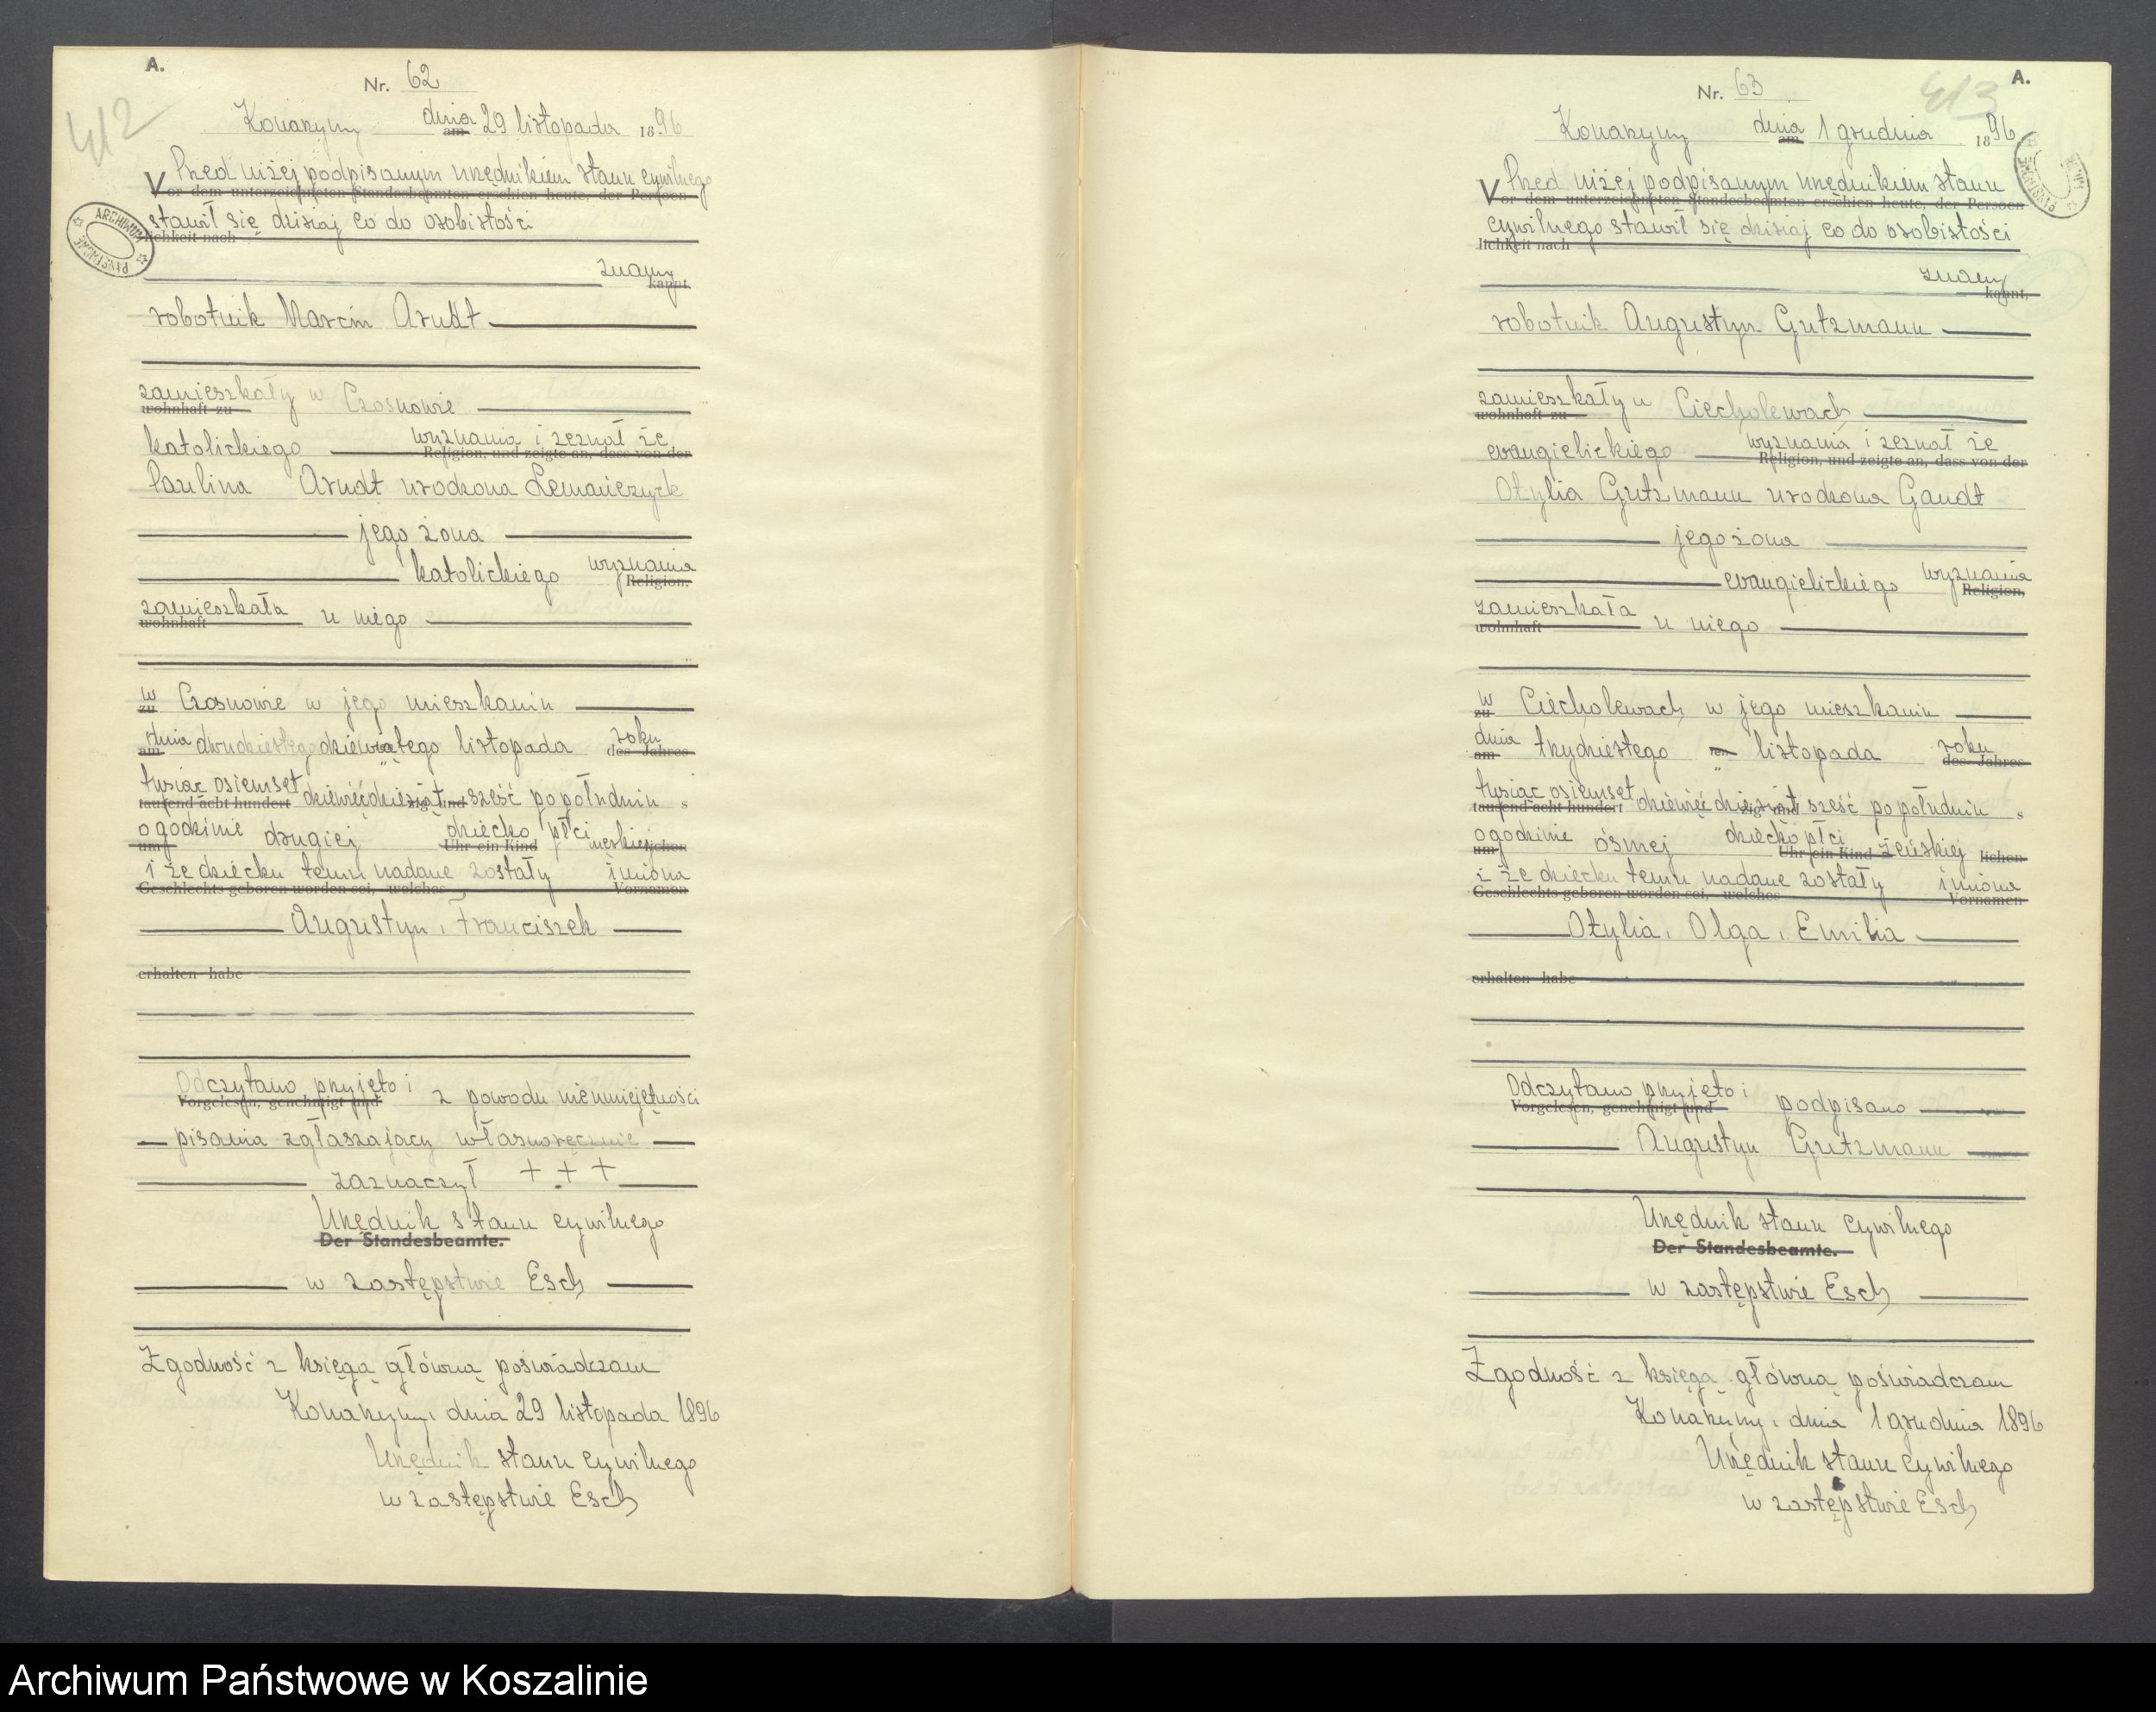 A.
Nr. 62
412
Konarzyny dnia am 29 listopada 1896
Przed niżej podpisanym urzędnikiem stanu cywilnego
Vor dem unterzeichneten Standesbeamten erschien heute, der Persoen-
stawił się dzisiaj co do osobistości
lichkeit nach
znany
kannt,
robotnik Marcin Arndt
zamieszkały w Czosnowie
wohnhaft zu
katolickiego wyznania i zeznał że
Religion, und zeigte an, dass von der
Paulina Arndt urodzona Lemańczyck
jego żona
katolickiego wyznania
Religion,
zamieszkała u niego
wohnhaft
w Czosnowie w jego mieszkaniu
zu
dnia dwudziestego dziewiątego listopada roku
am des Jahres
tysiąc osiemset dziewięćdziesiąt sześć popołudniu s
tausend acht hundert zig und
o godzinie drugiej dziecko płci męskiej
um Uhr ein Kind lichen
i że dziecku temu nadane zostały imiona
Geschlechts geboren worden sei, welches Vornamen
Augustyn, Franciszek
erhalten habe
Odczytano przyjęto i z powodu nieumiejętności
Vorgelesen, genehmigt und
pisania zgłaszający własnoręcznie
zaznaczył + + +
Urzędnik stanu cywilnego
Der Standesbeamte.
w zastępstwie Esch
Zgodność z księgą główną poświadczam
Konarzyny, dnia 29 listopada 1896
Urzędnik stanu cywilnego
w zastępstwie Esch
ARCHIWUM PAŃSTWOWE
A.
Nr. 63
413
Konarzyny dnia am 1 grudnia 1896
Przed niżej podpisanym urzędnikiem stanu
Vor dem unterzeichneten Standesbeamten erschien heute, der Persoen-
cywilnego stawił się dzisiaj co do osobistości
lichkeit nach
znany
kannt,
robotnik Augustyn Gutzmann
zamieszkały w Ciecholewach
wohnhaft zu
ewangielickiego wyznania i zeznał że
Religion, und zeigte an, dass von der
Otylia Gutzmann urodzona Gandt
jego żona
ewangielickiego wyznania
Religion,
zamieszkała u niego
wohnhaft
w Ciecholewach w jego mieszkaniu
zu
dnia trzydziestego ten listopada roku
am des Jahres
tysiąc osiemset dziewięćdziesiąt sześć popołudniu s
tausend acht hundert zig und
o godzinie ósmej dziecko płci żeńskiej
um Uhr ein Kind lichen
i że dziecku temu nadane zostały imiona
Geschlechts geboren worden sei, welches Vornamen
Otylia, Olga, Emilia
erhalten habe
Odczytano przyjęto i podpisano
Vorgelesen, genehmigt und
Augustyn Gutzmann
Urzędnik stanu cywilnego
Der Standesbeamte.
w zastępstwie Esch
Zgodność z księgą główną poświadczam
Konarzyny, dnia 1 grudnia 1896
Urzędnik stanu cywilnego
w zastępstwie Esch
Archiwum Państwowe w Koszalinie